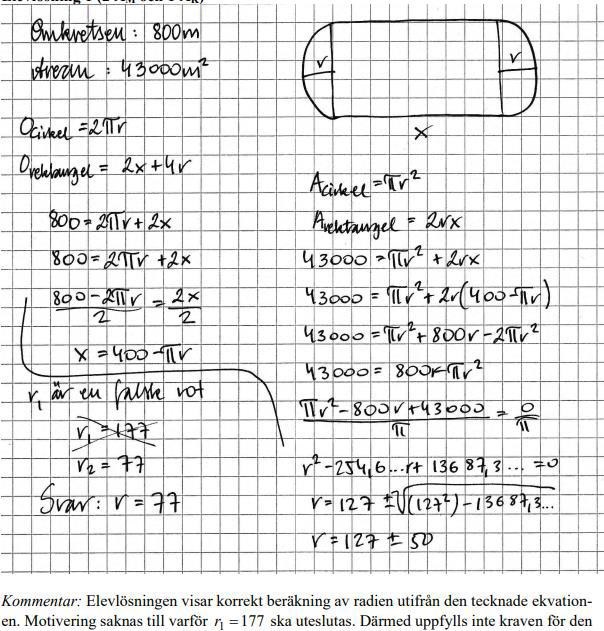 Omkretsen : 800m
Arean : 43000m²
r
r
x
Ocirkel = 2πr
Orektangel = 2x+4r
800 = 2πr + 2x
800 = 2πr + 2x
800 - 2πr / 2 = 2x / 2
x = 400 - πr
r₁ är en falsk rot
r₁ = 177
r₂ = 77
Svar: r = 77
Acirkel = πr²
Arektangel = 2rx
43000 = πr² + 2rx
43000 = πr² + 2r(400-πr)
43000 = πr² + 800r - 2πr²
43000 = 800r - πr²
πr² - 800r + 43000 / π = 0 / π
r² - 254,6...r + 13687,3... = 0
r = 127 ± √(127²) - 13687,3...
r = 127 ± 50
Kommentar: Elevlösningen visar korrekt beräkning av radien utifrån den tecknade ekvation-
en. Motivering saknas till varför r₁ = 177 ska uteslutas. Därmed uppfylls inte kraven för den